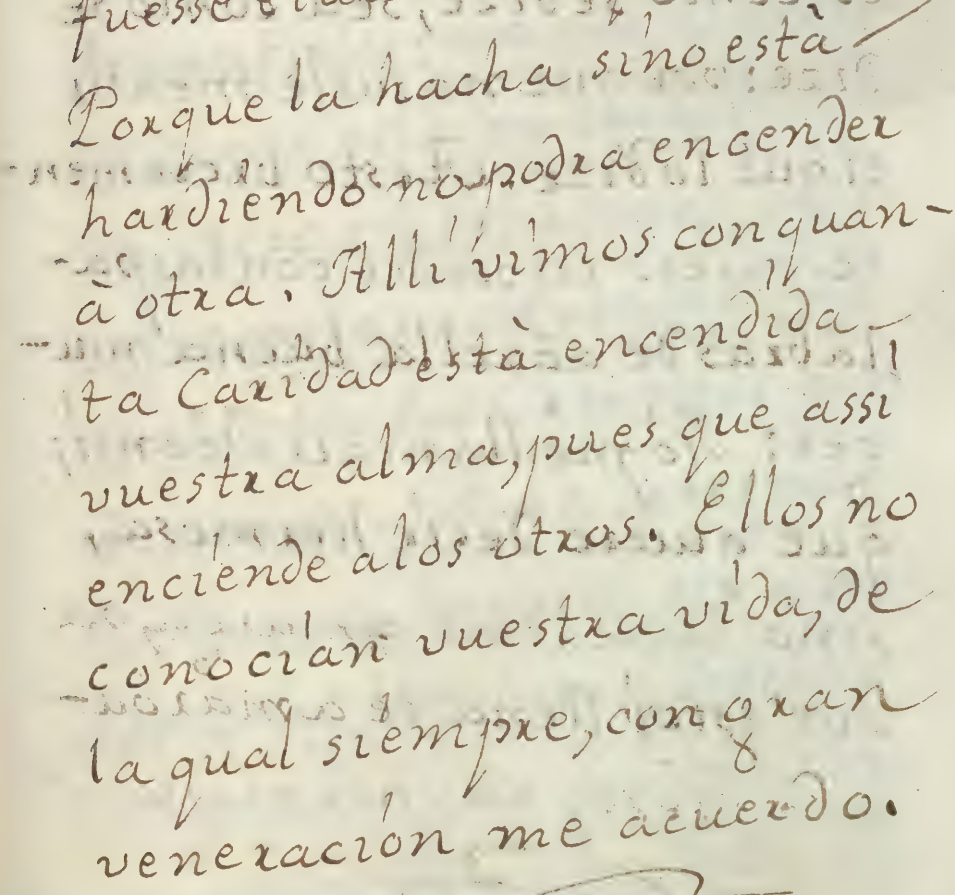 fuesse
Porque la hacha sino està
hardiendo no podra encender
à otra. Alli vimos con quan-
ta Caridad està encendida
vuestra alma, pues que assi
enciende alos otros. Ellos no
conocian vuestra vida, de
la qual siempre, con gran
veneración me acuerdo.